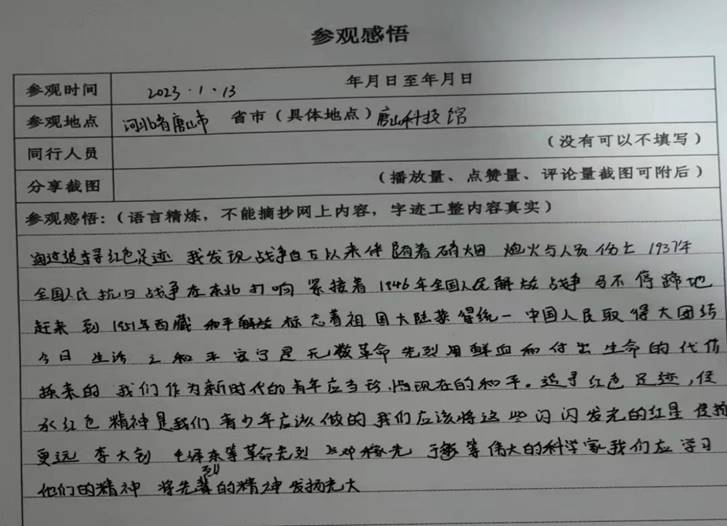 参观感悟
参观时间 2023.1.13 年月日至年月日
参观地点 河北省唐山市 省市（具体地点）唐山科技馆
同行人员 （没有可以不填写）
分享截图 （播放量、点赞量、评论量截图可附后）
参观感悟：（语言精炼，不能摘抄网上内容，字迹工整内容真实）
通过追寻红色足迹 我发现战争自古以来伴随着硝烟 炮火与人员伤亡 1937年
全国人民抗日战争在东北打响 紧接着1946年全国人民解放战争马不停蹄地
赶来 到1951年西藏和平解放标志着祖国大陆基督统一 中国人民取得大团结
今日生活之和平安宁是无数革命先烈用鲜血和付出生命的代价
换来的 我们作为新时代的青年应当珍惜现在的和平。追寻红色足迹，传
承红色精神是我们青少年应该做的我们应该将这些闪闪发光的红星 传扬
更远 李大钊 毛泽东等革命先烈 与邓稼先 于敏等伟大的科学家我们应学习
他们的精神 将先辈的精神发扬光大